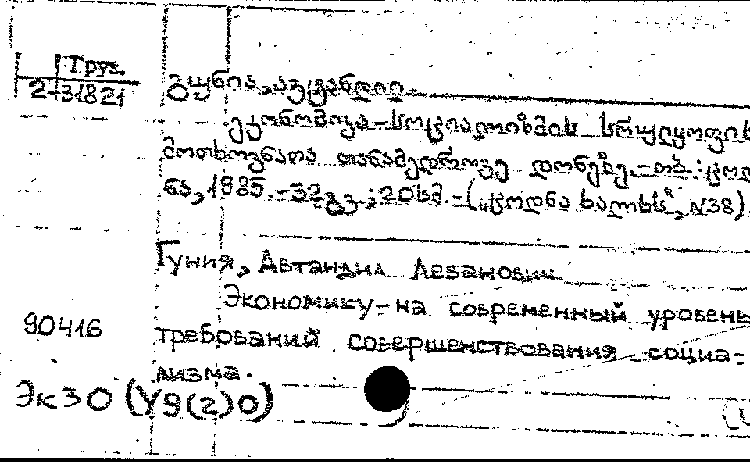 Груз.
2-31821
გუნია, ავთანდილ.
ეკონომიკა-სოციალიზმის სრულყოფის
მოთხოვნათა თანამედროვე დონეზე.-თბ.:ცოდ
ნა, 1985.-32გვ.; 20სმ.-("ცოდნა ხალხს", N38)
Гуния, Автандил Леванович.
Экономику-на современный уровень
90416 требований совершенствования социа=
лизма.
Эк30 (У9(2)0)